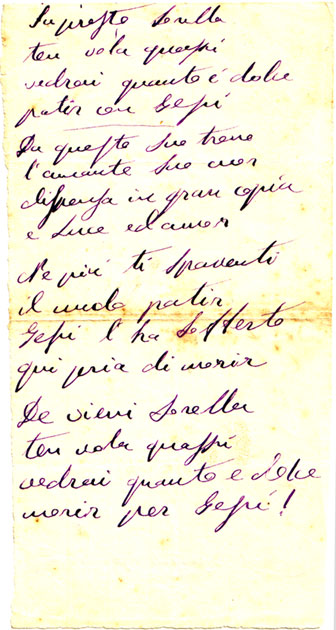 Su presto Sorella
ten vola quassù
vedrai quanto è dolce
patir con Gesù
Da questo Suo trono
l'amante Suo cuor
dispensa in gran copia
e Luce ed amor
Ne più ti spaventi
il nudo patir
Gesù l'ha Sofferto
qui pria di morir
De vieni Sorella
ten vola quassù
vedrai quanto e dolce
morir per Gesù!